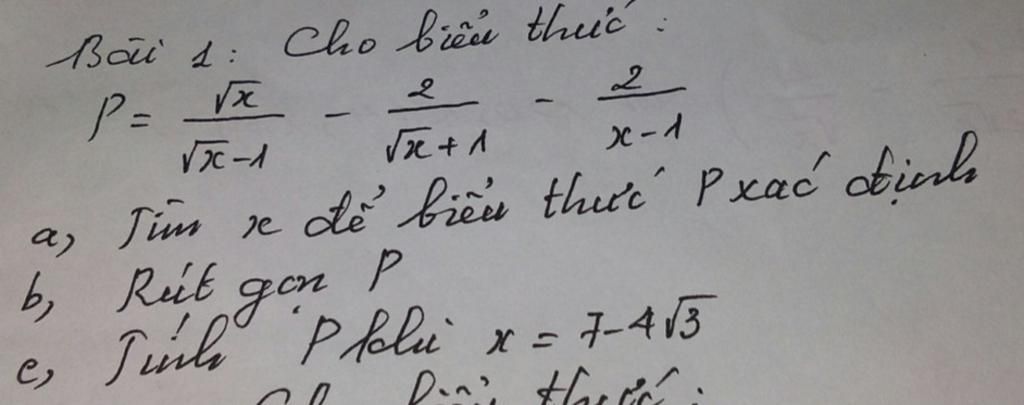 Bài 1: Cho biểu thức:
P = √x/(√x-1) - 2/(√x+1) - 2/(x-1)
a, Tìm x để biểu thức P xác định
b, Rút gọn P
c, Tính P khi x = 7-4√3
Cho biểu thức: